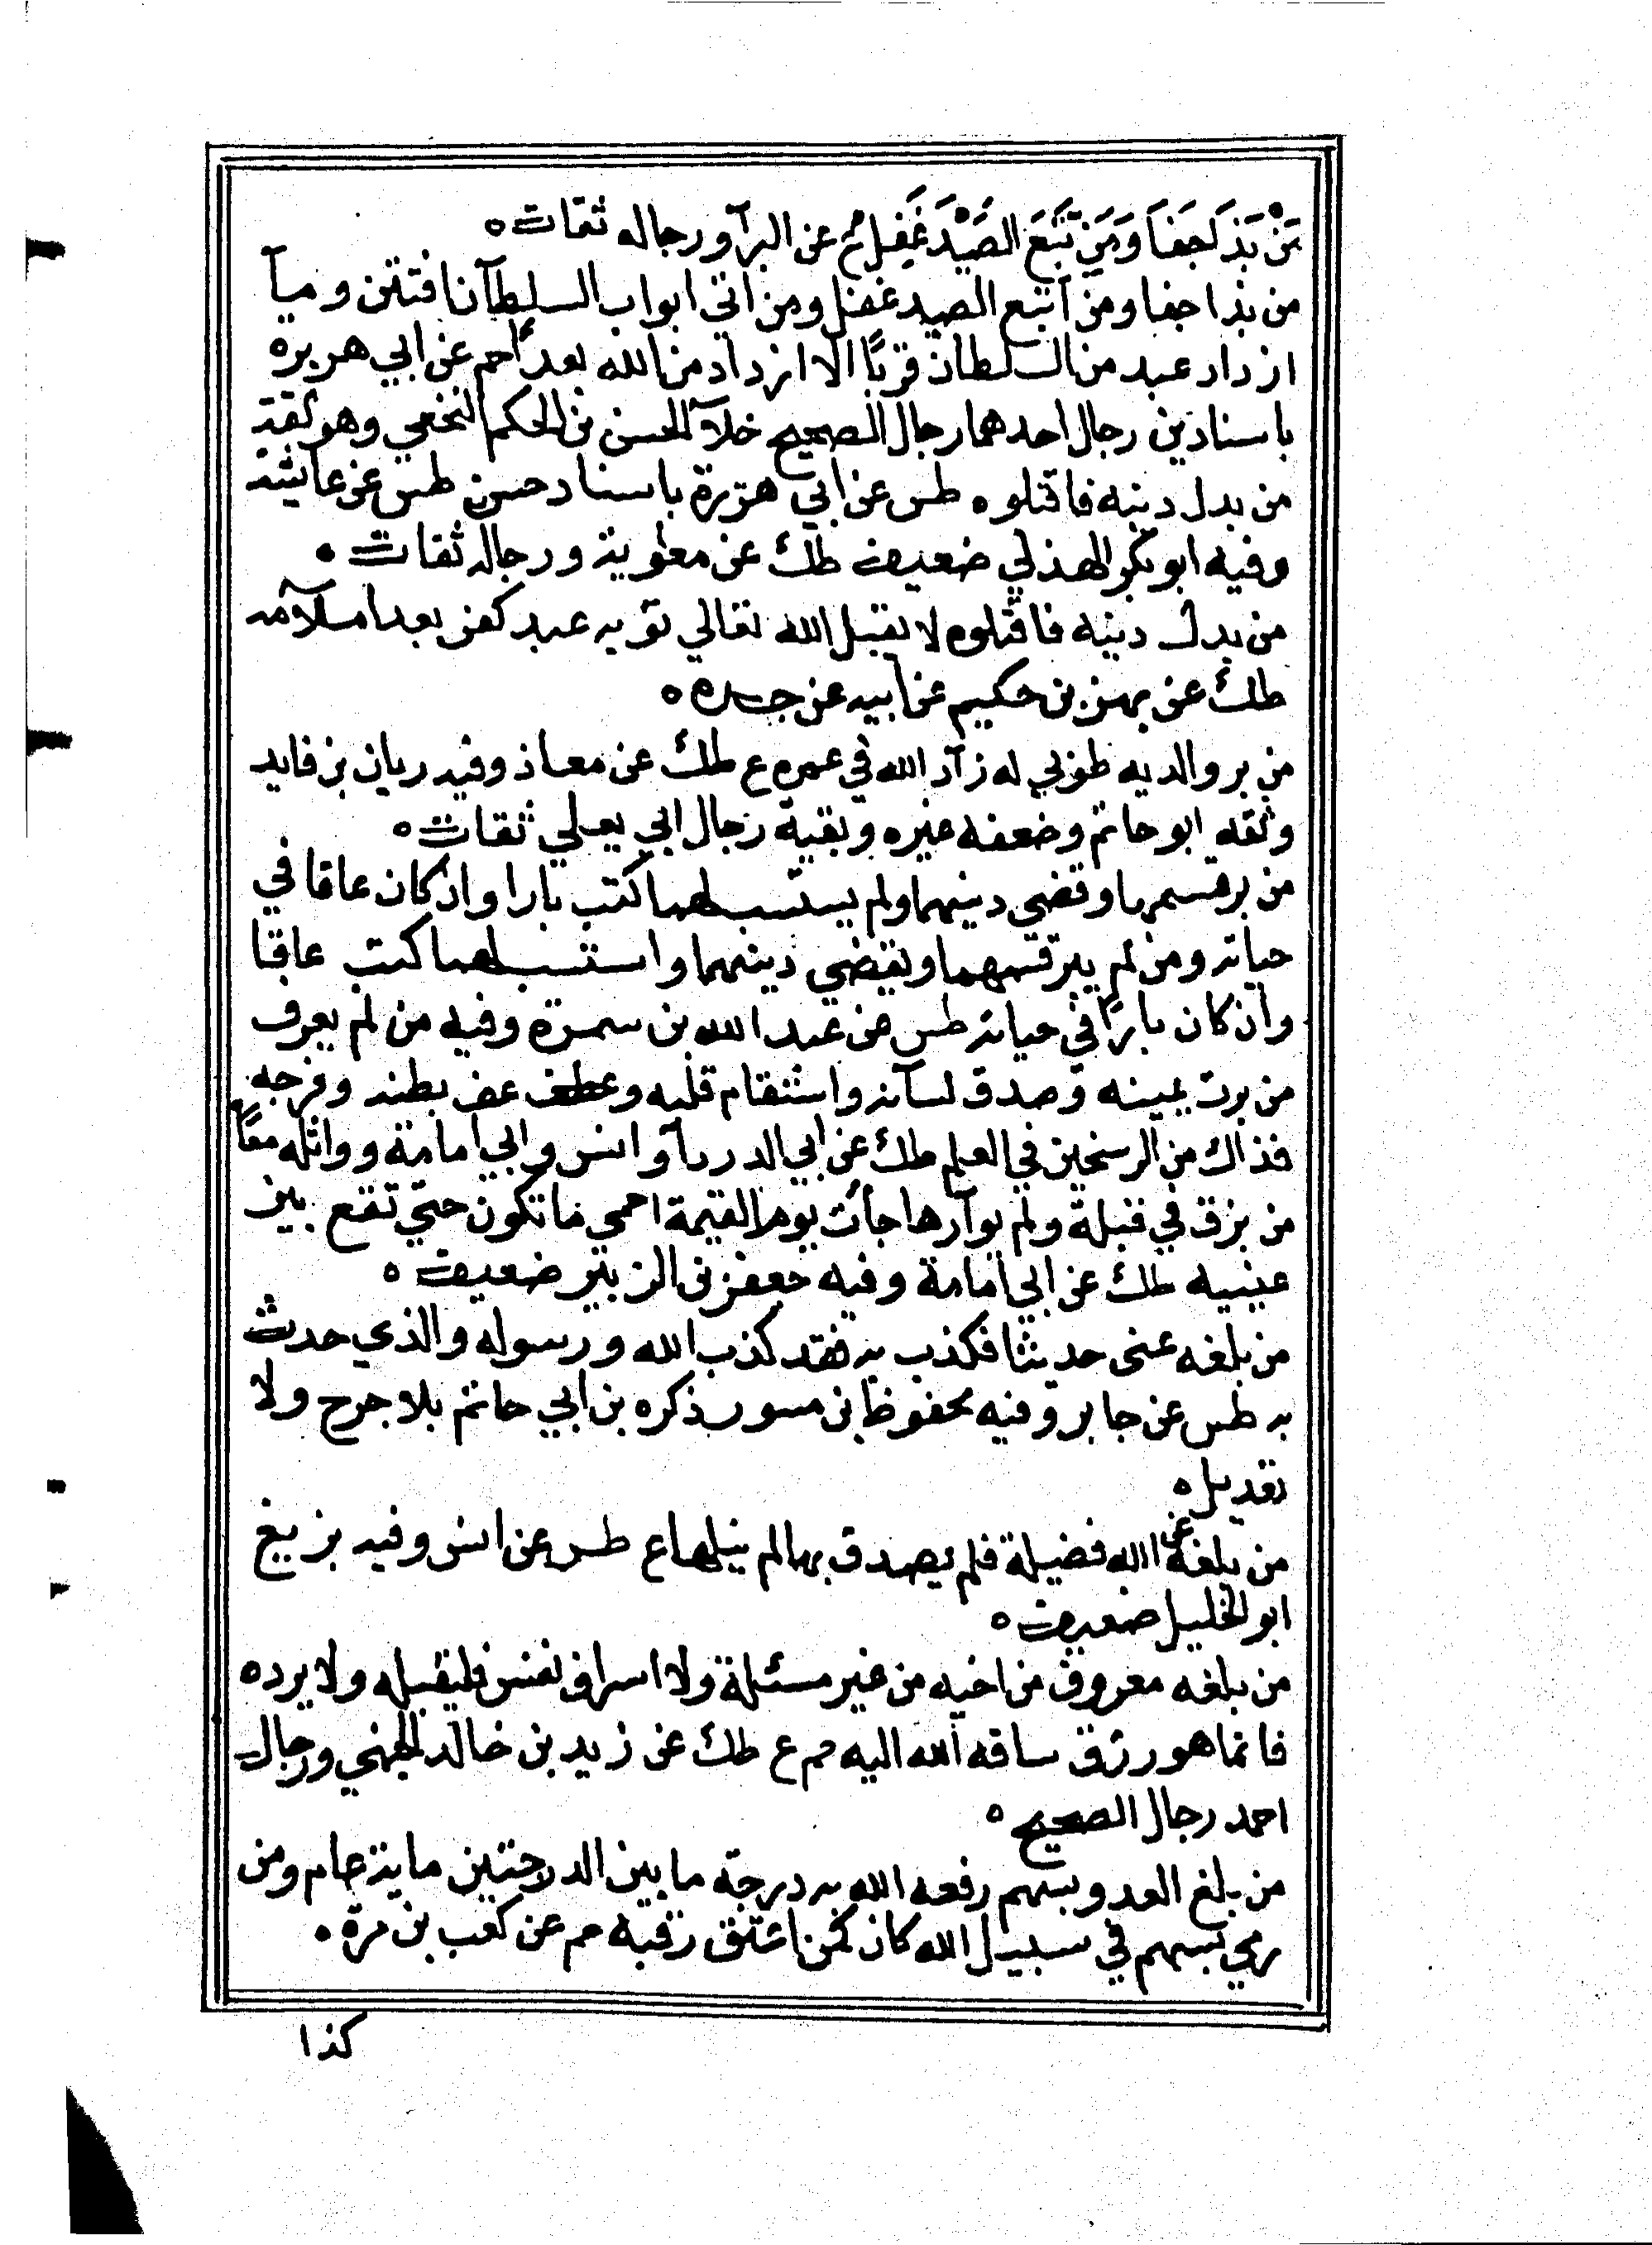 مَنْ بَدَا جَفَا وَمَنِ تَّبَعَ الصَيْدَ غَفِلَ حم عن البرآ ورجاله ثقات ٥
من بذا جفا ومن اتبع الصيد غفل ومن اتي ابواب السلطآنا فتتن وميآ
ازداد عبد من السلطان قربًا الا ازداد من الله بعدًا حم عن ابي هريره
باسنادين رجال احدهما رجال الصحيح خلآ الحسن بن الحكم النخعي وهو ثقة
من بدل دينه فاقتلوه طس عن ابي هريرة باسناد حسن طس عن عايشة
وفيه ابو بكر الهذلي ضعيف طك عن معوية ورجاله ثقات ٥
من بدل دينه فاقتلوه لا يقبل الله تعالي توبه عبد كفر بعد اسلآمه
طك عن بهز بن حكيم عن ابيه عن جده ٥
من بر والديه طوبي له زآد الله في عمره ع طك عن معاذ وفيه ريان بن فايد
وثقه ابو حاتم وضعفه غيره وبقية رجال ابي يعلي ثقات ٥
من بر قسمهما وقضي دينهما ولم يستسب لهما كتب بارا وان كان عاقا في
حياته ومن لم يبر قسمهما ويقضي دينهما واستسب لهما كتب عاقا
وان كان بارًا في حياته طس عن عبد الله بن سمرة وفيه من لم يعرف
من برت يمينه وصدق لسآنه واستقام قلبه وعطف عف بطنه وفرجه
فذاك من الرسخين في العلم طك عن ابي الدردآ وانس وابي امامة وواثله معًا
من بزق في قبلة ولم يوآرها جأت يوم القيمة احمي ما تكون حتي تقع بين
عينيه طك عن ابي امامة وفيه جعفر بن الزبير ضعيف ٥
من بلغه عني حديثا فكذب به فقد كذب الله ورسوله والذي حدث
به طس عن جابر وفيه محفوظ بن مسور ذكره بن ابي حاتم بلا جرح ولا
تعديل ٥
من بلغه عن الله فضيلة فلم يصدق بها لم ينلها ع طس عن انس وفيه بزيع
ابو الخليل ضعيف ٥
من بلغه معروف من اخيه من غير مسئلة ولا اسراف نفس فليقبله ولا يرده
فانما هو رزق ساقه الله اليه حم ع طك عن زيد بن خالد الجهني ورجال
احمد رجال الصحيح ٥
من بلغ العدو بسهم رفعه الله به درجة ما بين الدرجتين ماية عام ومن
رمي بسهم في سبيل الله كان كمن اعتق رقبه حم عن كعب بن مرة ٥
كذا